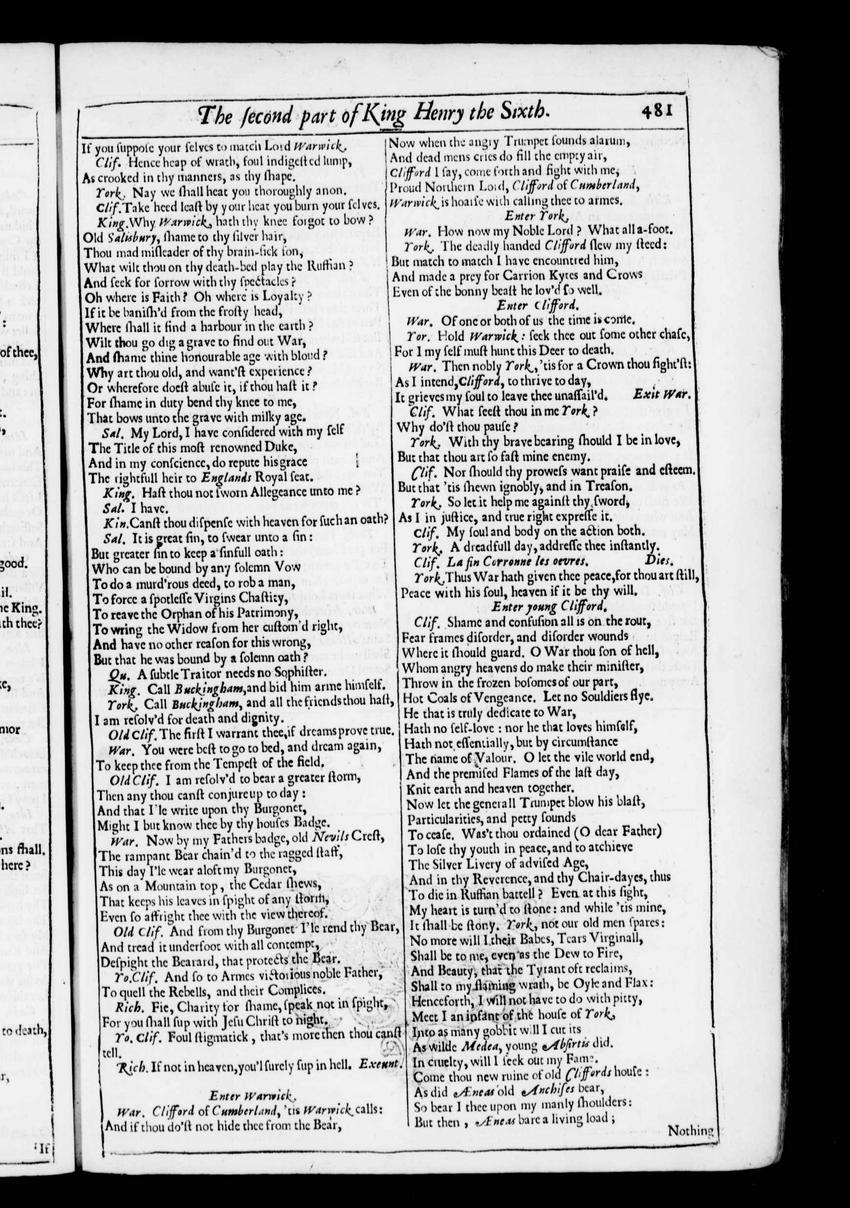 The ſecond part of King Henry the Sixth. 481
If you ſuppoſe your ſelves to match Lord Warwick.
Clif. Hence heap of wrath, foul indigeſted lump,
As crooked in thy manners, as thy ſhape.
York. Nay we ſhall heat you thoroughly anon.
Clif. Take heed leaſt by your heat you burn your ſelves.
King. Why Warwick, hath thy knee forgot to bow?
Old Salisbury, ſhame to thy ſilver hair,
Thou mad miſleader of thy brain-ſick ſon,
What wilt thou on thy death-bed play the Ruffian?
And ſeek for ſorrow with thy ſpectacles?
Oh where is Faith? Oh where is Loyalty?
If it be baniſh'd from the froſty head,
Where ſhall it find a harbour in the earth?
Wilt thou go dig a grave to find out War,
And ſhame thine honourable age with bloud?
Why art thou old, and want'ſt experience?
Or wherefore doeſt abuſe it, if thou haſt it?
For ſhame in duty bend thy knee to me,
That bows unto the grave with milky age.
Sal. My Lord, I have conſidered with my ſelf
The Title of this moſt renowned Duke,
And in my conſcience, do repute his grace
The rightfull heir to Englands Royal ſeat.
King. Haſt thou not ſworn Allegeance unto me?
Sal. I have.
Kin. Canſt thou diſpenſe with heaven for ſuch an oath?
Sal. It is great ſin, to ſwear unto a ſin:
But greater ſin to keep a ſinfull oath:
Who can be bound by any ſolemn Vow
To do a murd'rous deed, to rob a man,
To force a ſpotleſſe Virgins Chaſtity,
To reave the Orphan of his Patrimony,
To wring the Widow from her cuſtom'd right,
And have no other reaſon for this wrong,
But that he was bound by a ſolemn oath?
Qu. A ſubtle Traitor needs no Sophiſter.
King. Call Buckingham, and bid him arme himſelf.
York. Call Buckingham, and all the friends thou haſt,
I am reſolv'd for death and dignity.
Old Clif. The firſt I warrant thee, if dreams prove true.
War. You were beſt to go to bed, and dream again,
To keep thee from the Tempeſt of the field.
Old Clif. I am reſolv'd to bear a greater ſtorm,
Then any thou canſt conjure up to day:
And that I'le write upon thy Burgonet,
Might I but know thee by thy houſes Badge.
War. Now by my Fathers badge, old Nevils Creſt,
The rampant Bear chain'd to the ragged ſtaff,
This day I'le wear aloft my Burgonet,
As on a Mountain top, the Cedar ſhews,
That keeps his leaves in ſpight of any ſtorm,
Even ſo affright thee with the view thereof.
Old Clif. And from thy Burgonet I'le rend thy Bear,
And tread it underfoot with all contempt,
Deſpight the Bearard, that protects the Bear.
Yo.Clif. And ſo to Armes victorious noble Father,
To quell the Rebells, and their Complices.
Rich. Fie, Charity for ſhame, ſpeak not in ſpight,
For you ſhall ſup with Jeſu Chriſt to night.
Yo. Clif. Foul ſtigmatick, that's more then thou canſt
tell.
Rich. If not in heaven, you'l ſurely ſup in hell. Exeunt.
Enter Warwick.
War. Clifford of Cumberland, 'tis Warwick calls:
And if thou do'ſt not hide thee from the Bear,
Now when the angry Trumpet ſounds alarum,
And dead mens cries do fill the empty air,
Clifford I ſay, come forth and fight with me,
Proud Northern Lord, Clifford of Cumberland,
Warwick is hoarſe with calling thee to armes.
Enter York.
War. How now my Noble Lord? What all a-foot.
York. The deadly handed Clifford ſlew my ſteed:
But match to match I have encountred him,
And made a prey for Carrion Kytes and Crows
Even of the bonny beaſt he lov'd ſo well.
Enter Clifford.
War. Of one or both of us the time is come.
Yor. Hold Warwick: ſeek thee out ſome other chaſe,
For I my ſelf muſt hunt this Deer to death.
War. Then nobly York, 'tis for a Crown thou fight'ſt:
As I intend, Clifford, to thrive to day,
It grieves my ſoul to leave thee unaſſail'd. Exit War.
Clif. What ſeeſt thou in me York?
Why do'ſt thou pauſe?
York. With thy brave bearing ſhould I be in love,
But that thou art ſo faſt mine enemy.
Clif. Nor ſhould thy proweſs want praiſe and eſteem.
But that 'tis ſhewn ignobly, and in Treaſon.
York. So let it help me againſt thy ſword,
As I in juſtice, and true right expreſſe it.
Clif. My ſoul and body on the action both.
York. A dreadfull day, addreſſe thee inſtantly.
Clif. La fin Corronne les oevres. Dies.
York. Thus War hath given thee peace, for thou art ſtill,
Peace with his ſoul, heaven if it be thy will.
Enter young Clifford.
Clif. Shame and confuſion all is on the rout,
Fear frames diſorder, and diſorder wounds
Where it ſhould guard. O War thou ſon of hell,
Whom angry heavens do make their miniſter,
Throw in the frozen boſomes of our part,
Hot Coals of Vengeance. Let no Souldiers flye.
He that is truly dedicate to War,
Hath no ſelf-love: nor he that loves himſelf,
Hath not eſſentially, but by circumſtance
The name of Valour. O let the vile world end,
And the premiſed Flames of the laſt day,
Knit earth and heaven together.
Now let the generall Trumpet blow his blaſt,
Particularities, and petty ſounds
To ceaſe. Was't thou ordained (O dear Father)
To loſe thy youth in peace, and to atchieve
The Silver Livery of adviſed Age,
And in thy Reverence, and thy Chair-dayes, thus
To die in Ruffian battell? Even at this ſight,
My heart is turn'd to ſtone: and while 'tis mine,
It ſhall be ſtony. York, not our old men ſpares:
No more will I their Babes, Tears Virginall,
Shall be to me, even as the Dew to Fire,
And Beauty, that the Tyrant oft reclaims,
Shall to my flaming wrath, be Oyle and Flax:
Henceforth, I will not have to do with pitty,
Meet I an infant of the houſe of York,
Into as many gobbit will I cut its
As wilde Medea, young Abſirtis did.
In cruelty, will I ſeek out my Fame.
Come thou new ruine of old Cliffords houſe:
As did Æneas old Anchiſes bear,
So bear I thee upon my manly ſhoulders:
But then, Æneas bare a living load;
Nothing
of thee,
good.
ne King.
ith thee?
ns ſhall.
here?
to death,
If